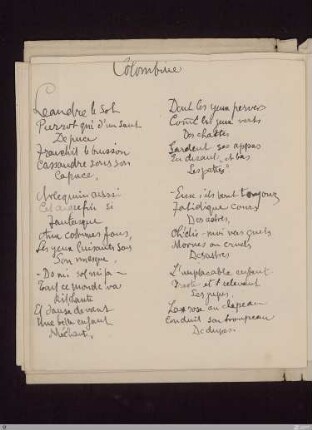 Colombine
Léandre le sot
Pierrot qui d'un saut
De puce
Franchit le buisson
Cassandre sous son
Capuce,
Arlequin aussi
Cet aigrefin si
Fantasque
Aux costumes fous,
Les yeux luisants sous
Son masque,
- Do mi sol mi fa -
Tout ce monde va
Rit, chante
Et danse devant
Une belle enfant
Méchante
Dont les yeux pervers
Comme les yeux verts
Des chattes
Gardent ses appas
Et disent, "à bas
Les pattes"
- Eux, ils vont toujours
Fatidique cours
Des astres,
Oh! dis-moi vers quels
Mornes ou cruels
Désastres
L'implacable enfant
Preste et relevant
Ses jupes,
La rose au chapeau
Conduit son troupeau
De dupes.